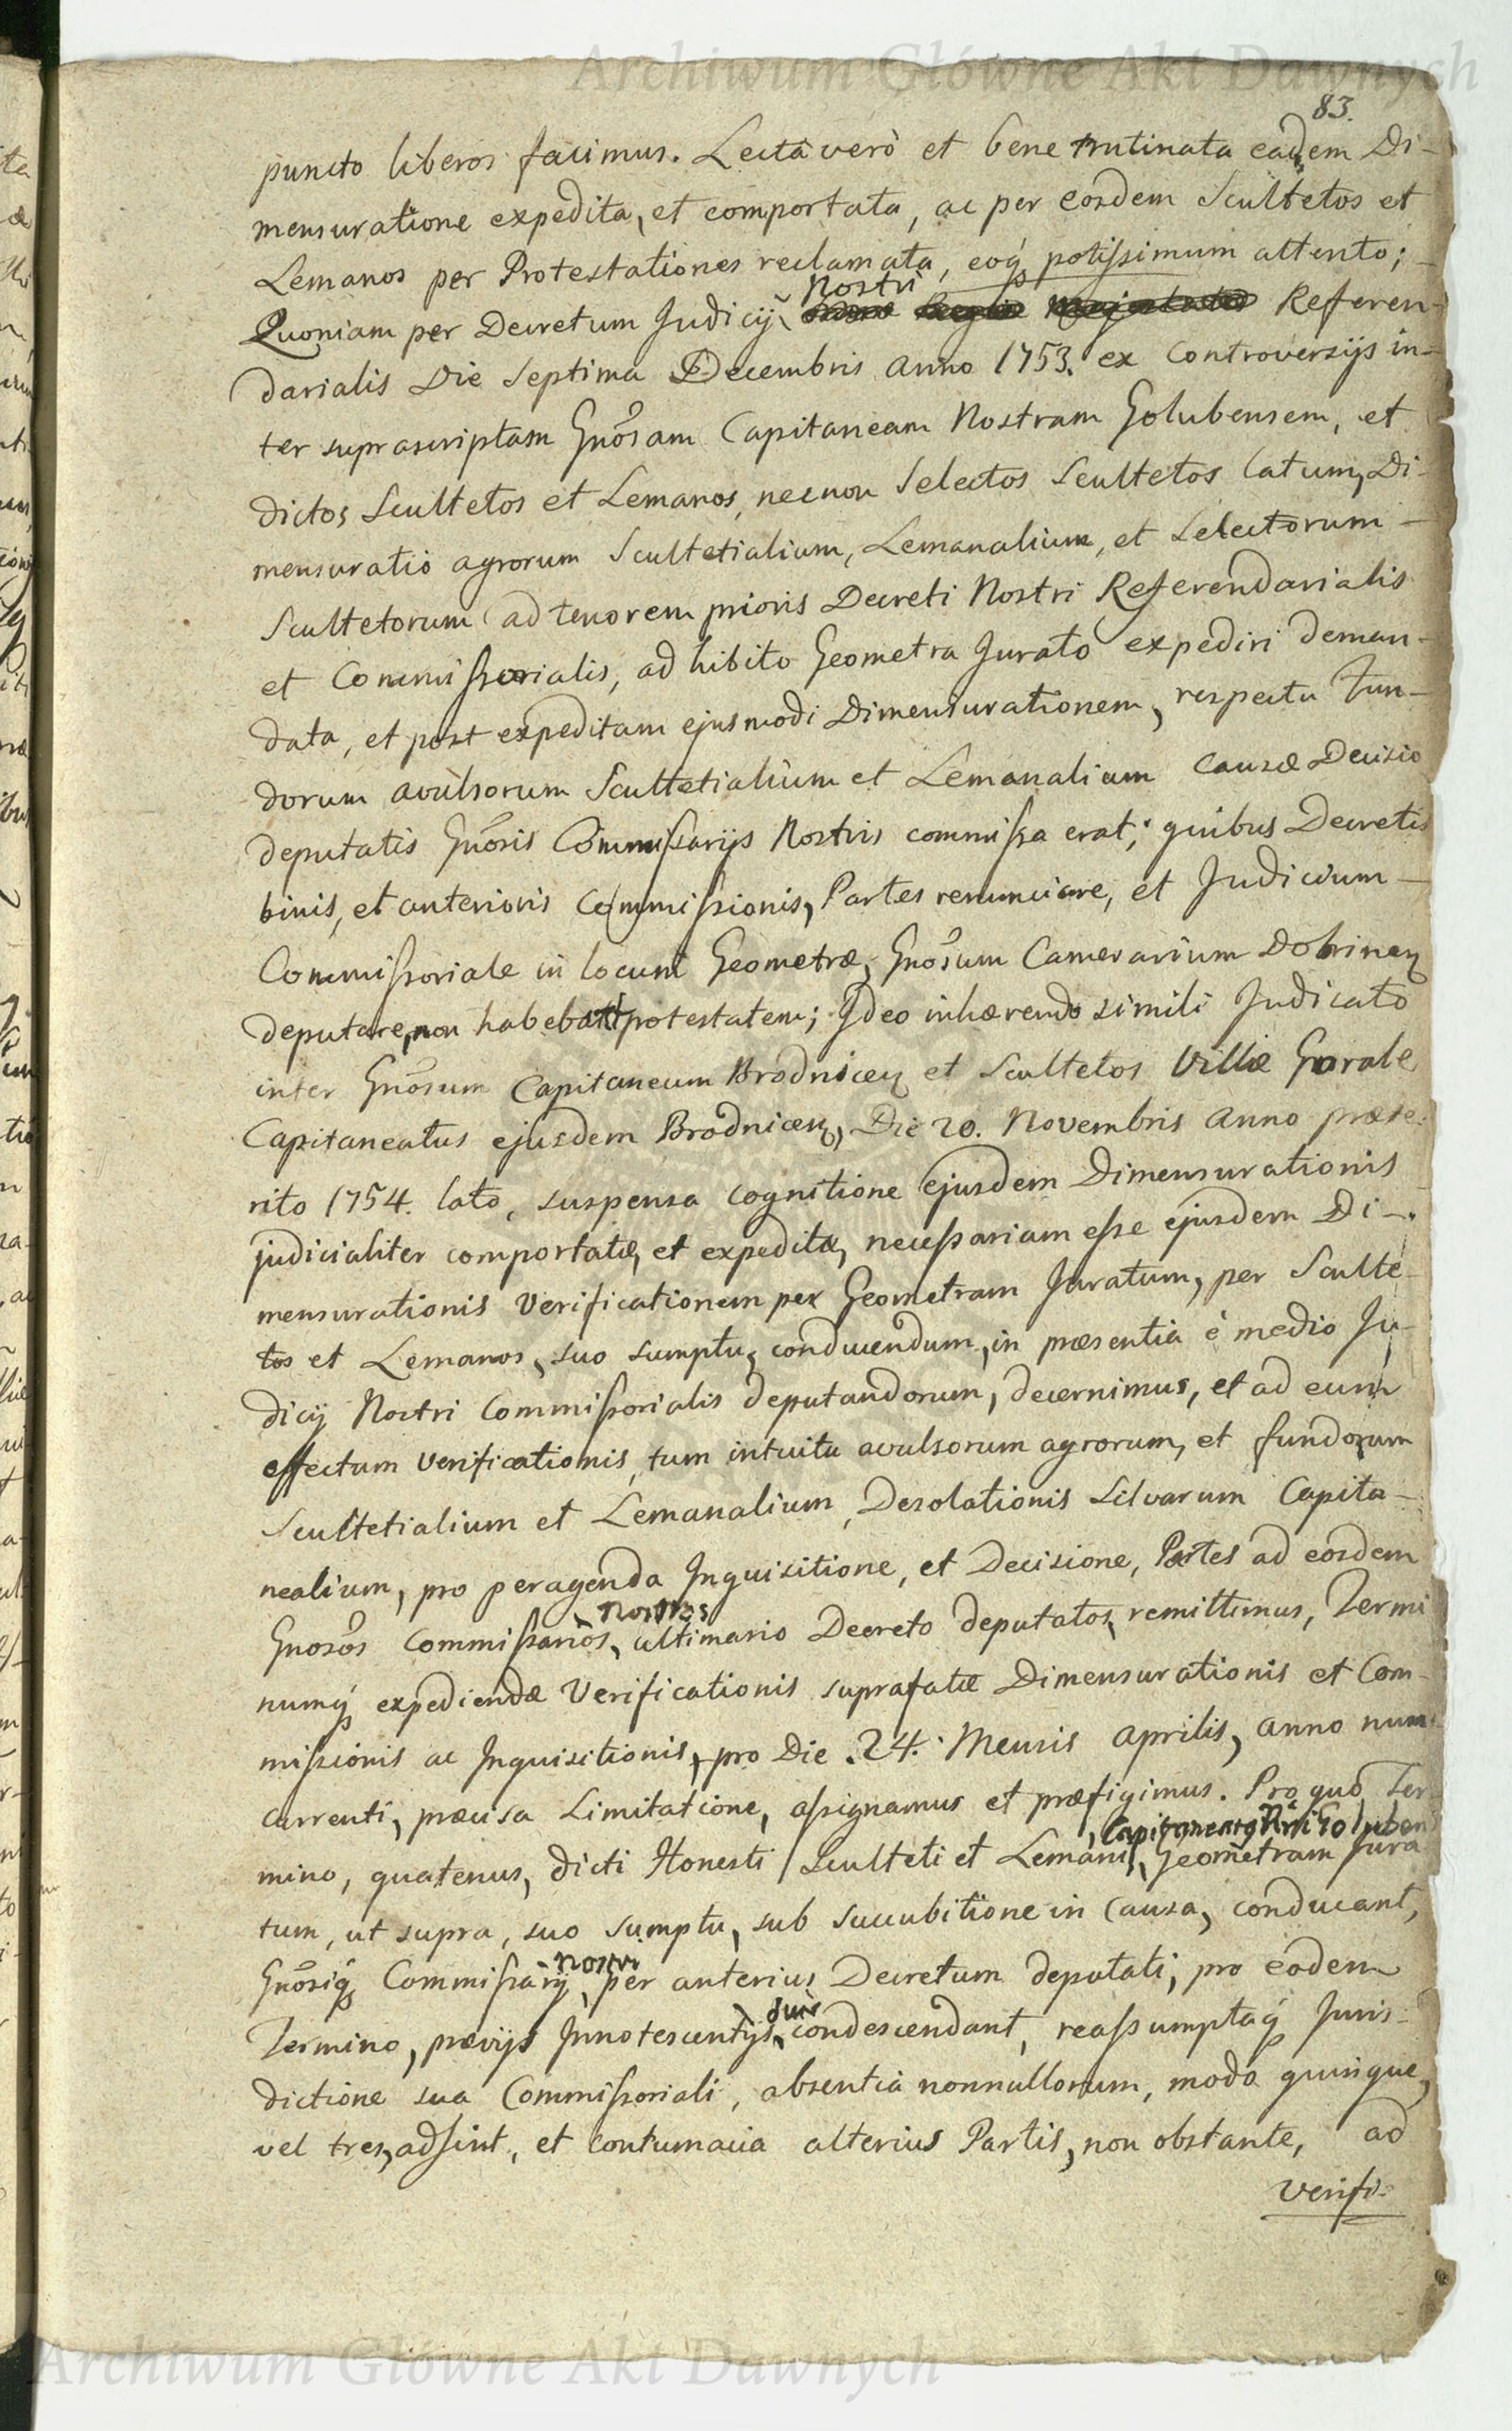 Archiwum Główne Akt Dawnych
83.
puncto liberos facimus. Lectâ verò et bene trutinata eadem Di-
mensuratione expedita, et comportata, ac per eosdem Scultetos et
Lemanos per Protestationes reclamata, eoq́ potissimum attento;
Nostri
Quoniam per Decretum Judicij Referen-
darialis Die Septima Decembris Anno 1753. ex Controversijs in-
ter suprascriptam Gnõsam Capitaneam Nostram Golubensem, et
dictos Scultetos et Lemanos, necnon Selectos Scultetos latum, Di-
mensuratio agrorum Scultetialium, Lemanalium, et Selectorum
Scultetorum ad tenorem prioris Decreti Nostri Referendarialis
et Commissorialis, adhibito Geometra Jurato expediri deman-
data, et post expeditam ejusmodi Dimensurationem, respectu Fun-
dorum avulsorum Scultetialium et Lemanalium Causæ Decisio
deputatis Gnõsis Commissarijs Nostris commissa erat; quibus Decretis
binis, et anterioris Commissionis, Partes renunciare, et Judicium
Commissoriale in locum Geometræ, Gnõsum Camerarium Dobrineņ
deputare, non habebant potestatem; Ideo inhærendo simili Judicato
inter Gnõsum Capitaneum Brodniceņ et Scultetos Villæ Gorale
Capitaneatus ejusdem Brodniceņ, Die 20. Novembris Anno præte-
rito 1754. lato, suspensa cognitione ejusdem Dimensurationis
judicialiter comportatæ, et expeditæ, necessariam esse ejusdem Di-
mensurationis Verificationem per Geometram Juratum, per Sculte-
tos et Lemanos, suo sumptu, conducendum, in præsentia è medio Ju-
dicij Nostri Commissorialis deputandorum, decernimus, et ad eum
effectum Verificationis, tum intuitu avulsorum agrorum, et fundorum
Scultetialium et Lemanalium, Desolationis Silvarum Capita-
nealium, pro peragenda Inquisitione, et Decisione, Partes ad eosdem
Nostros
Gnosõs Commissarios, ultimario Decreto deputatos, remittimus, Termi
numq́ expediendæ Verificationis suprafatæ Dimensurationis et Com-
missionis ac Inquisitionis, pro Die .24. Mensis Aprilis, Anno nunc
currenti, præcisa Limitatione, assignamus et præfigimus. Pro quo Ter-
Capitaneatq Nri Goluben
mino, quatenus, dicti Honesti Sculteti et Lemani, Geometram Jura
tum, ut supra, suo sumptu, sub succubitione in Causa, conducant,
Nostri
Gnõsiq́ Commissarij, per anterius Decretum deputati, pro eodem
suis
Termino, prævijs Innotescentijs, condescendant, reassumptaq́ Juris-
dictione sua Commissoriali, absentia nonnullorum, modo quinque,
vel tres, adsint, et contumacia alterius Partis, non obstante, ad
Verifi-
Archiwum Główne Akt Dawnych